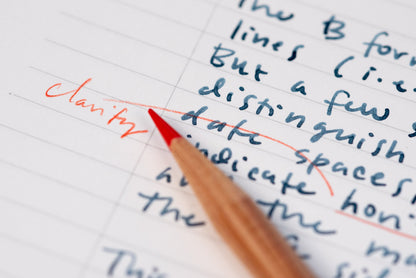 the B for
lines (i.e.
But a few s
distinguish
clarity
date spaces
indicate hon
the the ma
This